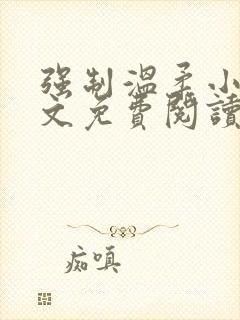 强制温柔小
文免費閱讀
痴嗔